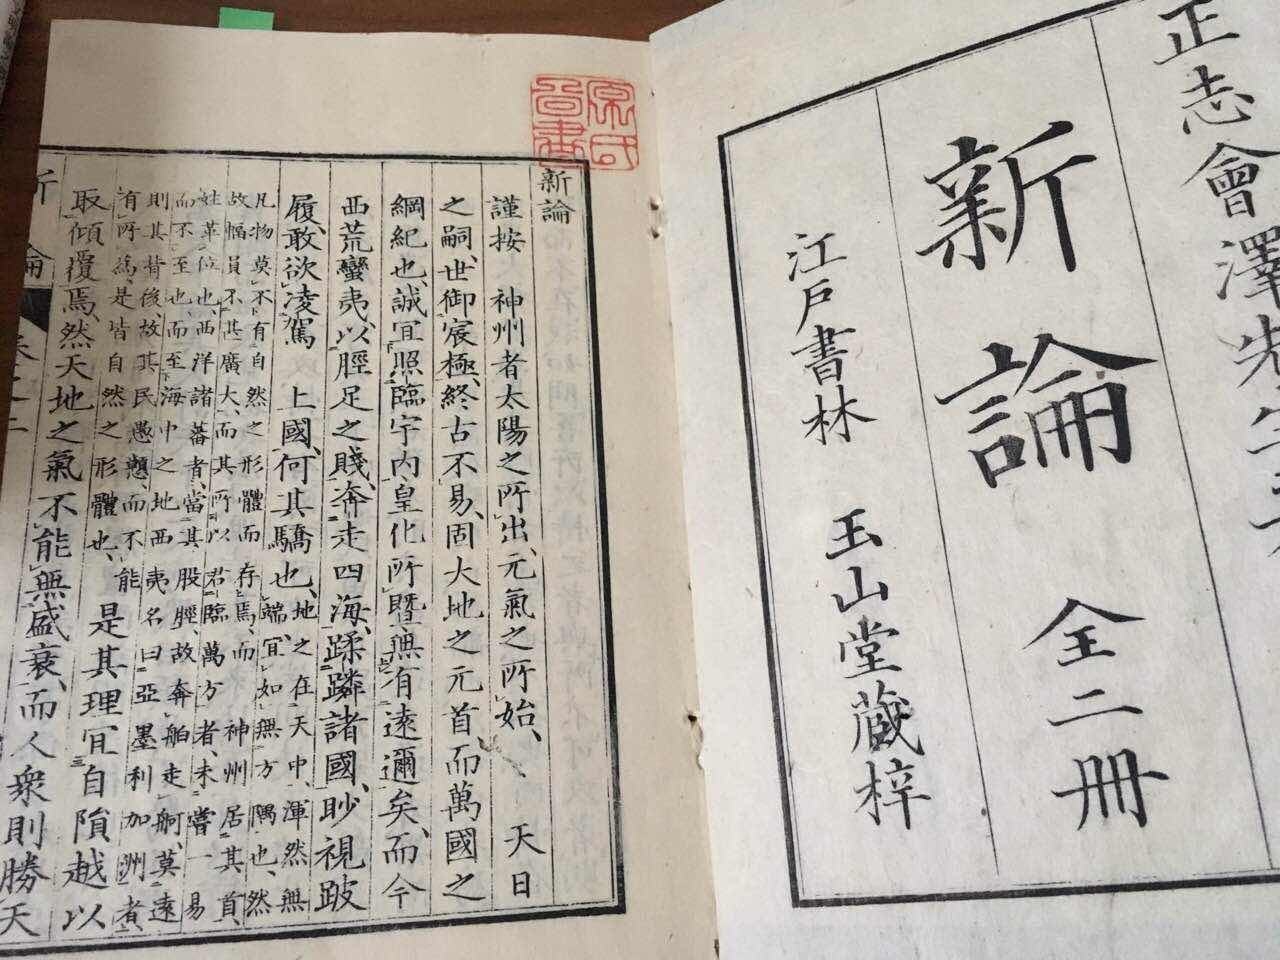 正志會澤先生
新論 全二冊
江戶書林 玉山堂藏梓
原氏
新論
謹按 神州者太陽之所出、元氣之所始、 天日
之嗣、世御宸極、終古不易、固大地之元首、而萬國之
綱紀也、誠宜照臨宇內、皇化所曁、無有遠邇矣、而今
西荒蠻夷、以脛足之賤、奔走四海、蹂躪諸國、眇視跛
履、敢欲凌駕 上國、何其驕也、
地之在天中、渾然無
端、宜如無方隅也、然
凡物莫不有自然之形體而存焉、而 神州居其首、
故幅員不甚廣大、而其所以 君臨萬方者、未嘗一易
姓革位也、西洋諸蕃者、當其股脛、故奔舶走舸、莫遠
而不至也、而至海中之地西夷名曰亞墨利加洲者、
則其背後、故其民愚戇、而不能
有所爲、是皆自然之形體也、
是其理宜自隕越以
取傾覆焉、然天地之氣、不能無盛衰、而人衆則勝天
論